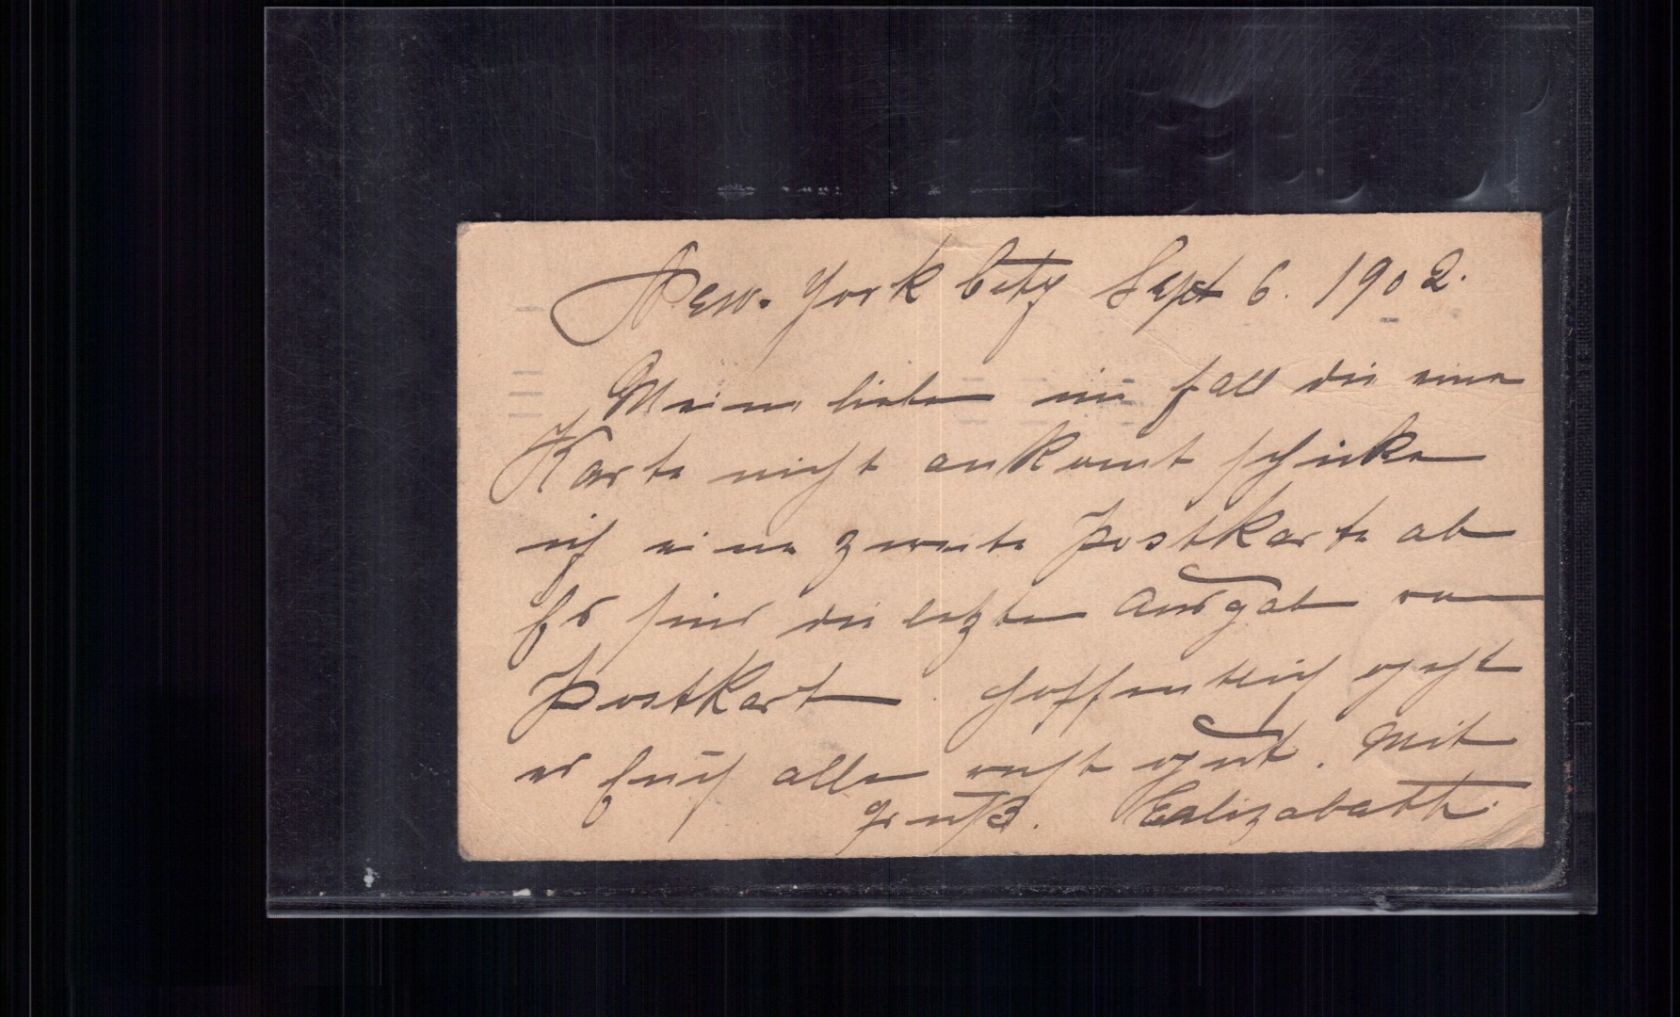 New. York City Sept 6. 1902.
Meine lieben im fall die eine
Karte nicht ankomt schicke
ich eine zweite Postkarte ab
Es sind die letzten Ausgaben von
Postkarten. hoffentlich geht
es Euch allen recht gut. Mit
gruß. Ealizabath.